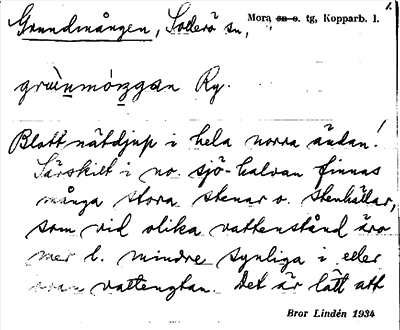 Grundmången, Sollerö sn, Mora sn o. tg, Kopparb. l.
grùnmóŋgan Ry.
Blott nätdjup i hela norra ändan!
Särskilt i no. sjö-halvan finnas
många stora stenar o. stenhällar,
som vid olika vattenstånd äro
mer l. mindre synliga i eller
ovan vattenytan. Det är lätt att
Bror Lindén 1934